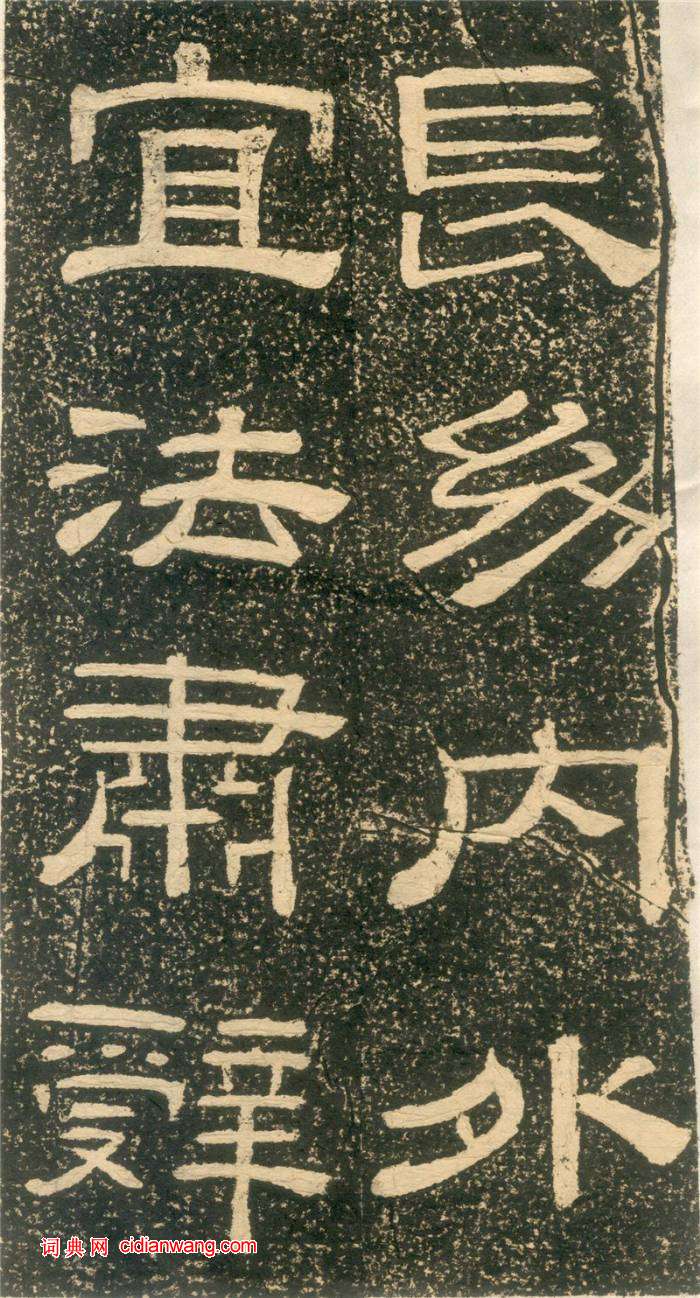 長幼内外
宜法肅辤
词典网 cidianwang.com